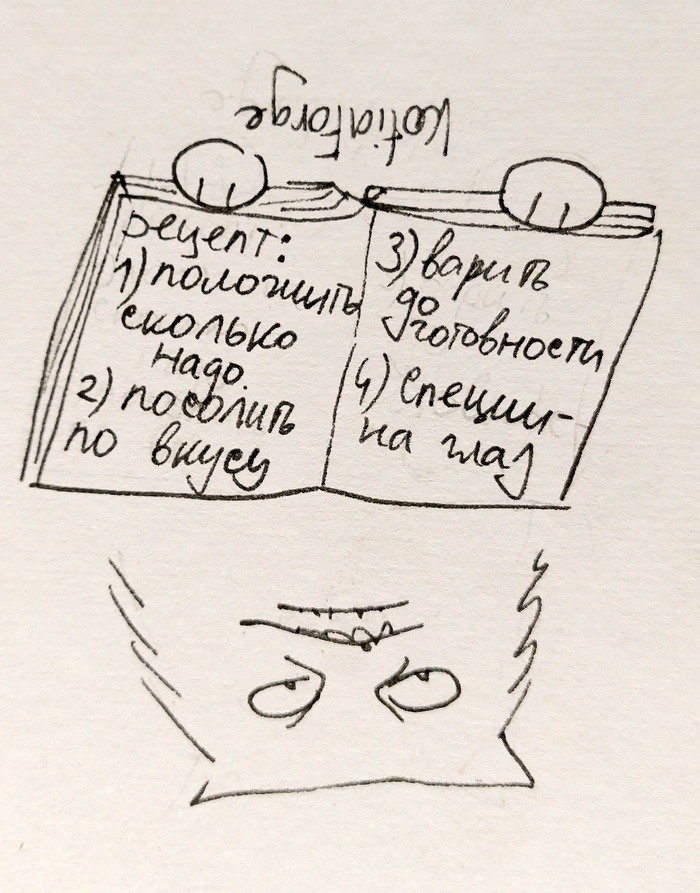 kotiaforge
рецепт:
1) положить
сколько
надо.
2) посолить
по вкусу
3) варить
до
готовности
4) специи-
на глаз